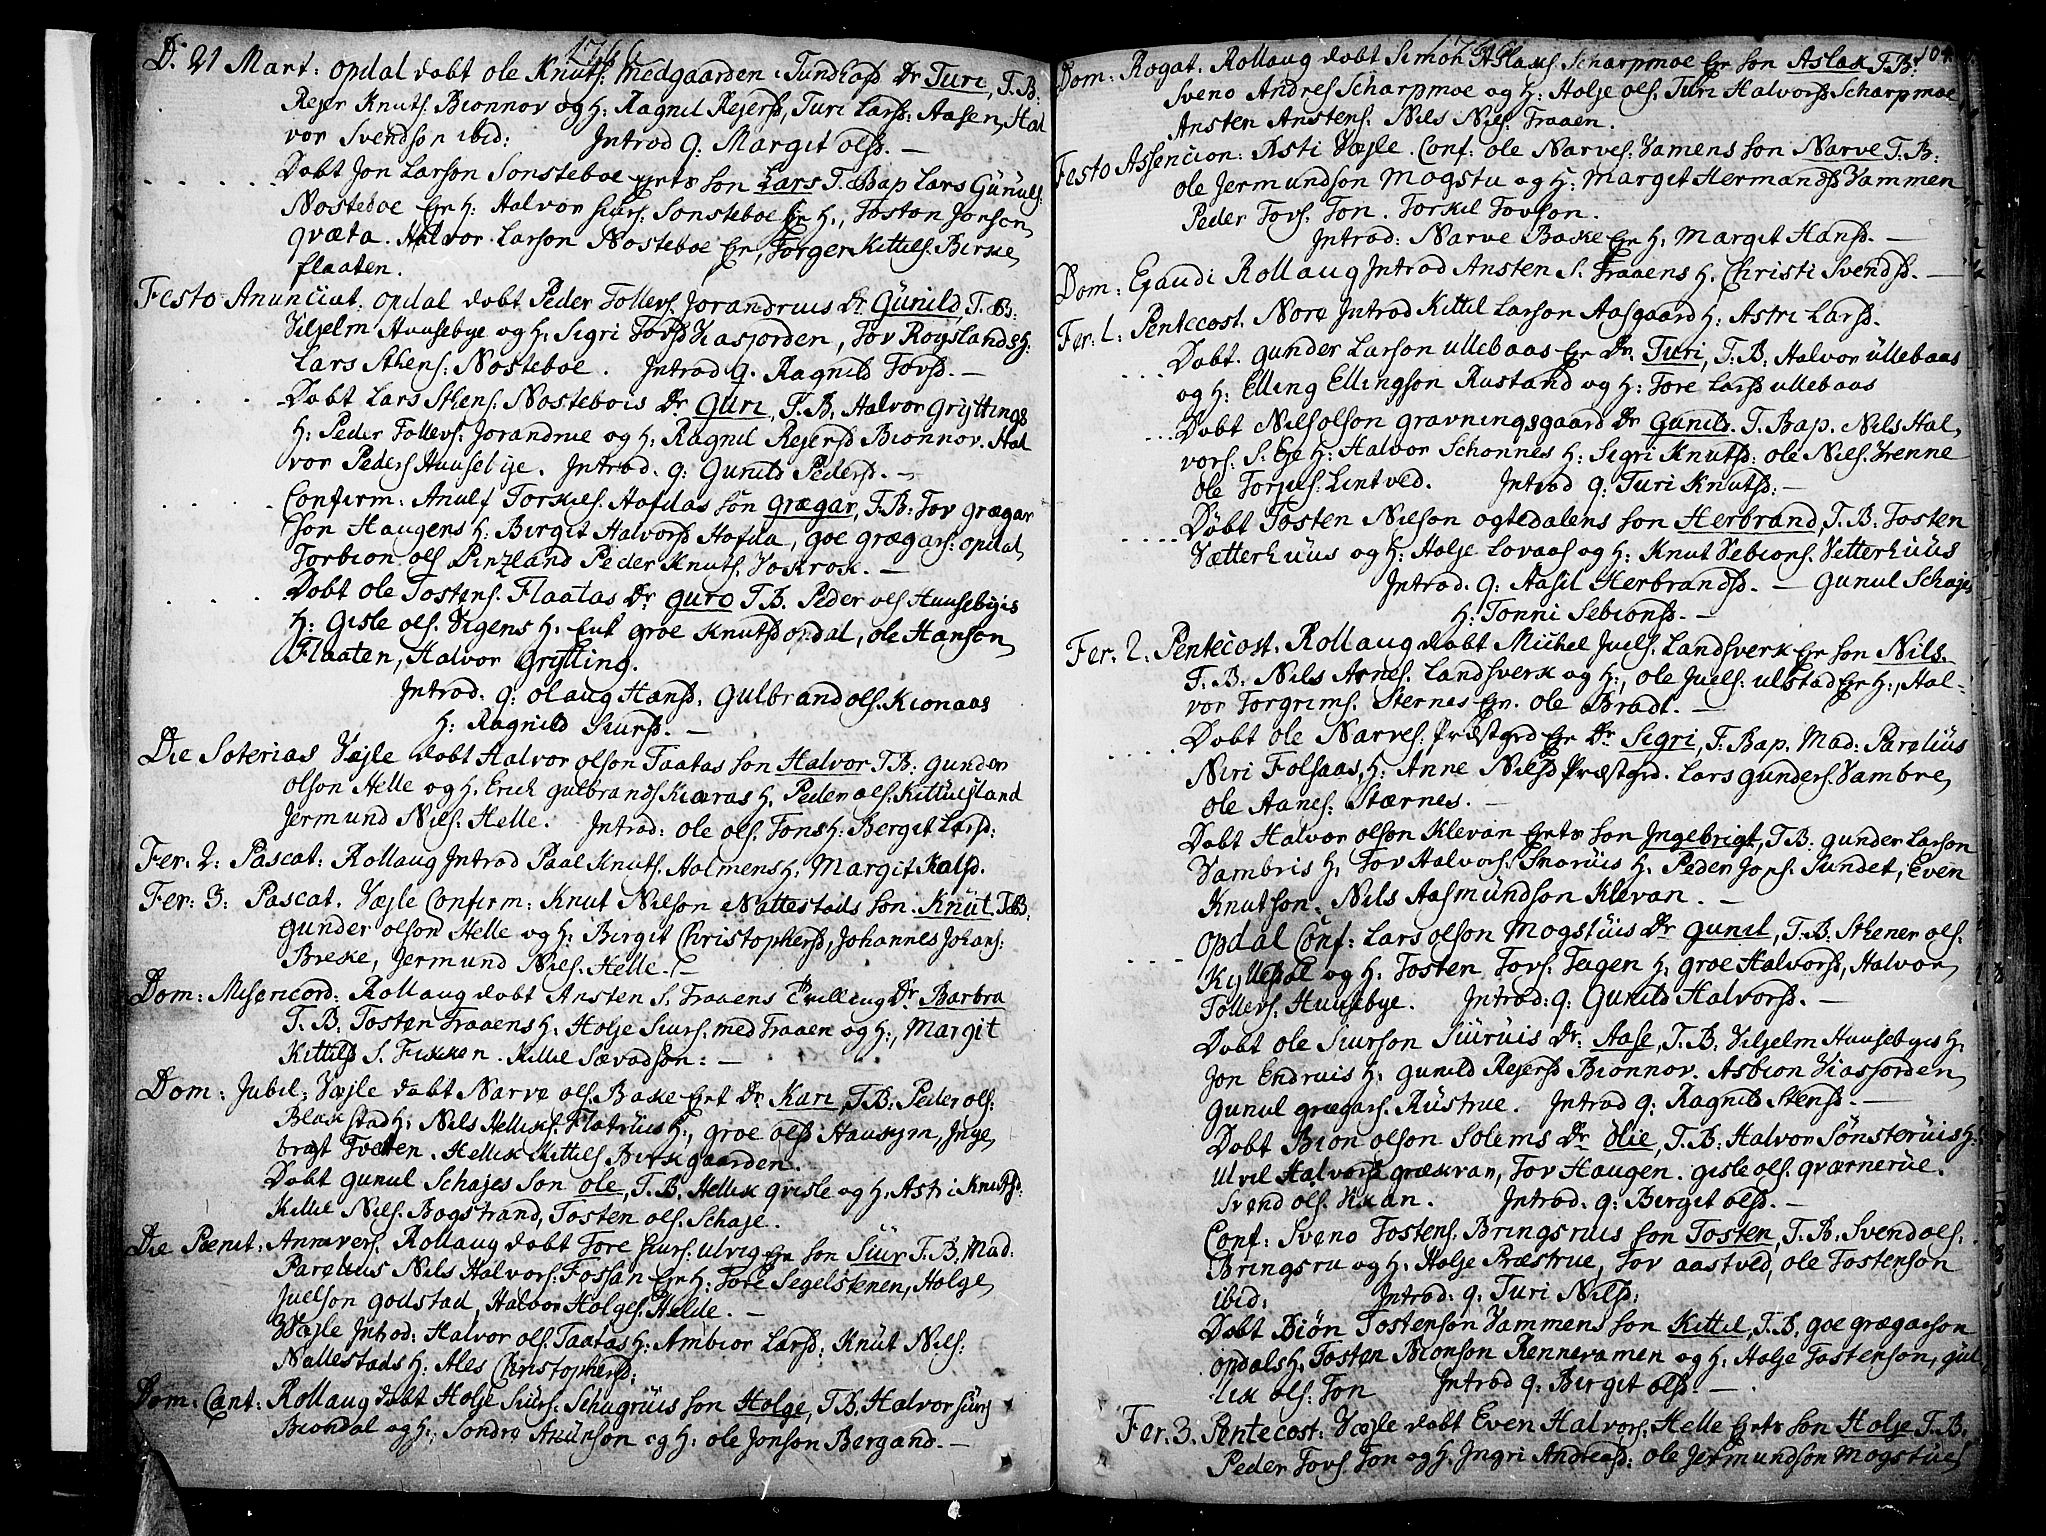 1766
D. 21 Mart: opdal dobt ole Knuts. medgaarden i Tundhofd Dr Turi, T.B:
Rejer Knuts. Bionnov og H: Ragnil Rejersd, Turi Larsd: Aasen, Hal
vor Svendson ibid: Introd q: Margit olsd. —
Dobt Jon Larson Sonsteboe Egte son Lars T. Bap Lars Gunuls:
Nosteboe Er H: Halvor Siurs. Sonsteboe Er H., Tosten Jonson,
qvæta. Halvor Larson Nosteboe Er, Torger Kittils. Birke,
flaaten.
Festo Anunciat: opdal dobt Peder Tollevs. Jorandruis Dr Günild, T.B:
Viljelm Huusebye og H: Sigri Torsd Kiasjorden, Tov Royslands H:
Lars Sthens: Nosteboe. Introd q. Ragnild Tovsd. —
Dobt Lars Sthens. Nostebois Dr Guri, T.B. Halvor Gryttings
H: Peder Tollevs: Jorandrue og H: Ragnil Rejersd Bionnov. Hal
vor Peders Huusebye. Introd. q: Gunild Pedersd. —
Confirm: Anulf Torkiels. Hofdas son grægar, T.B: Tov grægar
son Haugens H: Birgit Halvorsd Hofda, goe grægars: opdal,
Torbion ols Pinzland Peder Knuts. Vokrok. —
Dobt ole Tostens. Flaatas Dr guro T.B. Peder ols Huusebyis
H: Gisle ols. Vigens H: Enk groe Knutsd opdal, ole Hanson,
Flaaten, Halvor Grytting.
Introd. q: olaug Hansd. Gulbrand ols. Kionaas
H: Ragnild Siursd. —
Die Soterias Vejle dobt Halvor olson Taatas son Halvor T.B: gunder
olson Helle og H: Erich gulbrands Kiøras H: Peder ols. Kittilsland
Jermund Nils: Helle. Introd: ole ols. Tons H: Bergit Larsd:
Fer: 2: Pascat: Rollaug Introd Paal Knuts. Holmens H: Margit Kalsd.
Fer: 3: Pascat. Vejle Confirm: Knut Nilson Nattestads son. Knüt T.B.
gunder olson Helle og H: Birgit Christophersd, Johannes Johans:
Breske, Jermund Niels. Helle. —
Dom: Misericord: Rollaug dobt Ansten S. Fraaens Tvilling Dr Barbra
T.B: Tosten Fraaens H: Holje Siurs. med Fraaen og H:, Margit
Kittilsd S. Fekken. Killie Sævadson: —
Dom: Jubil: Vejle dobt Narve ols. Bake Egt Dr Kari, T.B: Peder ols:
Blakstad H: Nils Helliks. Flatruis H:, groe olsd Haukym, Inge,
brigt Tveten. Hellik Kittils Birkgaarden.
Dobt gunul Schajes son ole, T.B. Hellik grisle og H: Astri Knutsd:
Killil Nils. Bogstrand, Tosten ols. Schaje.
Die Pænit: Annivers. Rollaug dobt Tore Siurs. ulvig Er son Siur T.B: Mad:
Parelius Nils Halvors: Fossan Er H: Tore Segelstenen, Holge,
Juelson Godstad, Halvor Holges. Helde. —
Vejle Introd: Halvor ols. Taatas H: Ambior Larsd: Knüt Nils:
Nattestads H: Ales Christophersd:
Dom. Cant: Rollaug dobt Holje Siurs. Schugruis son Holge, T.B. Halvor Siurs
Biondal og H:, Sondre Akünson og H: ole Jonson Bergand. —
1766 104
Dom: Rogat: Rollaug dobt Simon Aslaks Scharpmoe Er son Aslak T.B:
Sveno Andres Scharpmoe og H: Holje ols. Turi Halvorsd Scharpmoe
Ansten Anstens: Nils Nils: Fraaen.
Festo Assencion: Asti Vejle. Conf: ole Narves: Vamens son Narve T.B:
ole Jermundson Mogstu og H: Margit Hermandsd Vammen
Peder Tovs. Ton. Torkil Tovson.
Introd: Narve Bake Er H: Margit Hansd. —
Dom: Exaudi Rollaug Introd Ansten S. Fraaens H. Christi Svendsd. —
Fer: 1. Pentecost. Nore Introd Kittil Larson Aasgaard H: Astri Larsd.
Dobt. gunder Larson ullebaas Er Dr. Turi, T.B: Halvor üllebaas
og H: Elling Ellingson Rustand og H: Tore Larsd ullebaas
Dobt Nils olson gravningsgaard Dr Gunild. T. Bap. Nils Hal,
vors: S. Eje H: Halvor Schonnes H: Sigri Knutsd: ole Nils. Vrenne
ole Torjus. Lintved. Introd q: Turi Knutsd: —
Döbt Tosten Nilson ogtedalens son Herbrand, T.B. Tosten
Vætterhüüs og H: Holje Lovaas og H: Knut Vebions. Vetterhüüs
Introd. q: Aasil Herbrandsd. — Gunul Schajes
H: Tonni Sebionsd. —
Fer. 2. Pentecost. Rollaug dobt Michel Juels. Landsverk Er son Nils.
T.B: Nils Arnes. Landsverk og H:, ole Juels: ulstad Er H:, Hal-
vor Torgrims. Sternes Er. ole Bradt. —
Dobt ole Narves. Præstgrd Er Dr Sigri, T. Bap. Mad: Parelius
Niri Folsaas, H: Anne Nilsd Præstgrd. Lars gunders. Vambre,
ole Aanes. Stærnes. —
Dobt Halvor olson Klevan Egte son Ingebrigt, T.B: gunder Larson
Vambris H, Tov Halvors. Snaruis H: Peder Jons. Sundet, Even
Knutson. Nils Aasmündson Klevan. —
opdal Conf: Lars olson Mogstüis Dr gunil, T.B: Sthener ols.
Kyllesdal og H: Tosten Tovs. Teigen H: groe Halvorsd, Halvor,
Tollevs. Huusebye. Introd: q: Günild Halvorsd. —
Dobt ole Siurson Siüruis Dr: Aase, T.B: Viljelm Huusebyes H:
Jon Endruis H: gunild Rejersd Bionnov. Asbion Kiasjorden,
Gunul grægars. Rüstrue. Introd q: Ragnild Stensd. —
Dobt Bion olson Solems Dr Olie, T.B: Halvor Sønsteruis H:
Ulvil Halvorsd grækvan, Tov Haugen. Gisle ols. qværnerüe.
Svend ols. Kaan. Introd. q: Birgit olsd. —
Conf: Sveno Tostens. Bringsruis son Tosten, T.B. Svend ols.
Bringsru og H: Holje Præstrue, Tov aastved, ole Tostenson
ibid: Introd: q: Turi Nilsd:
Dobt Biön Tostenson Vammens son Kittil, T.B. goe grægarson
opdals H, Tosten Bionson Rennevamen og H: Holje Tostenson, gul
lik ols. Ton Introd q: Birgit olsd. —
Fer. 3. Pentecost: Vejle dobt Even Halvors. Helle Egte son Holje T.B.
Peder Tovs. Ton og H. Ingri Andreasd: ole Jermundson Mogstue,